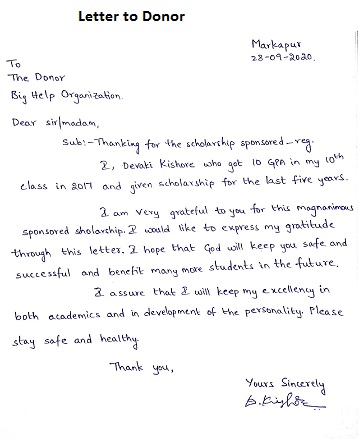 Letter to Donor
Markapur
28-09-2020.
To
The Donor
Big Help Organization.
Dear sir/madam,
Sub:-Thanking for the scholarship sponsored-reg.
I, Devaki Kishore who got 10 GPA in my 10th
class in 2017 and given scholarship for the last five years.
I am very grateful to you for this magnanimous
sponsored sholarship. I would like to express my gratitude
through this letter. I hope that God will keep you safe and
successful and benefit many more students in the future.
I assure that I will keep my excellency in
both academics and in development of the personality. Please
stay safe and healthy.
Thank you,
Yours Sincerely
D.Kishore